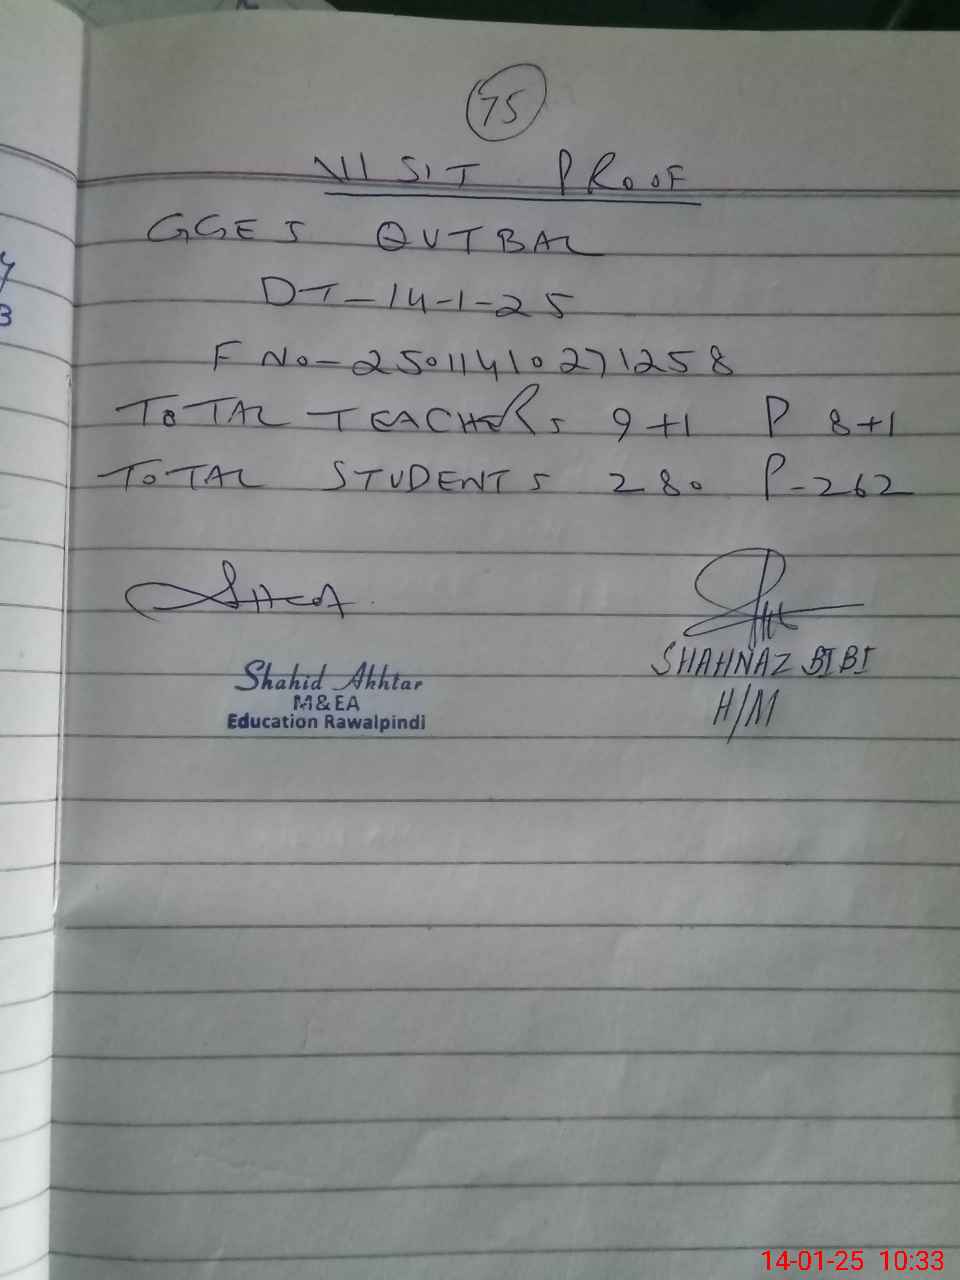 75
VISIT PROOF
GGES QUTBAL
DT-14-1-25
F No-25011410271258
TOTAL TEACHERS 9+1 P 8+1
TOTAL STUDENTS 280 P-262
Shahid Akhtar
M&EA
Education Rawalpindi
SHAHNAZ BIBI
H/M
y
3
14-01-25 10:33